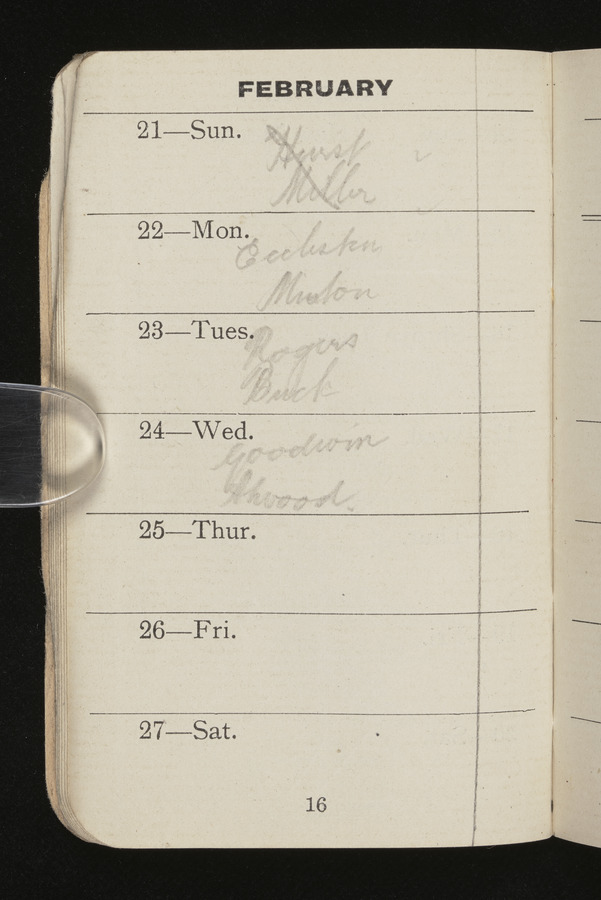 FEBRUARY
21—Sun.
Hurst
Miller
22—Mon.
Eccleston
Minton
23—Tues.
Rogers
Buck
24—Wed.
Goodwin
Atwood.
25—Thur.
26—Fri.
27—Sat.
16